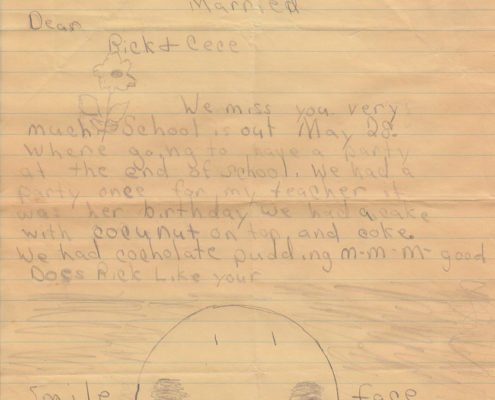 Married
Dear
Rick & Cece
We miss you very
much. School is out May 28.
Where going to have a party
at the end of school. We had a
party once for my teacher it
was her birthday we had a cake
with cocunut on top and coke.
We had cocholate pudding m-m-m- good
Does Rick Like your
Smile face